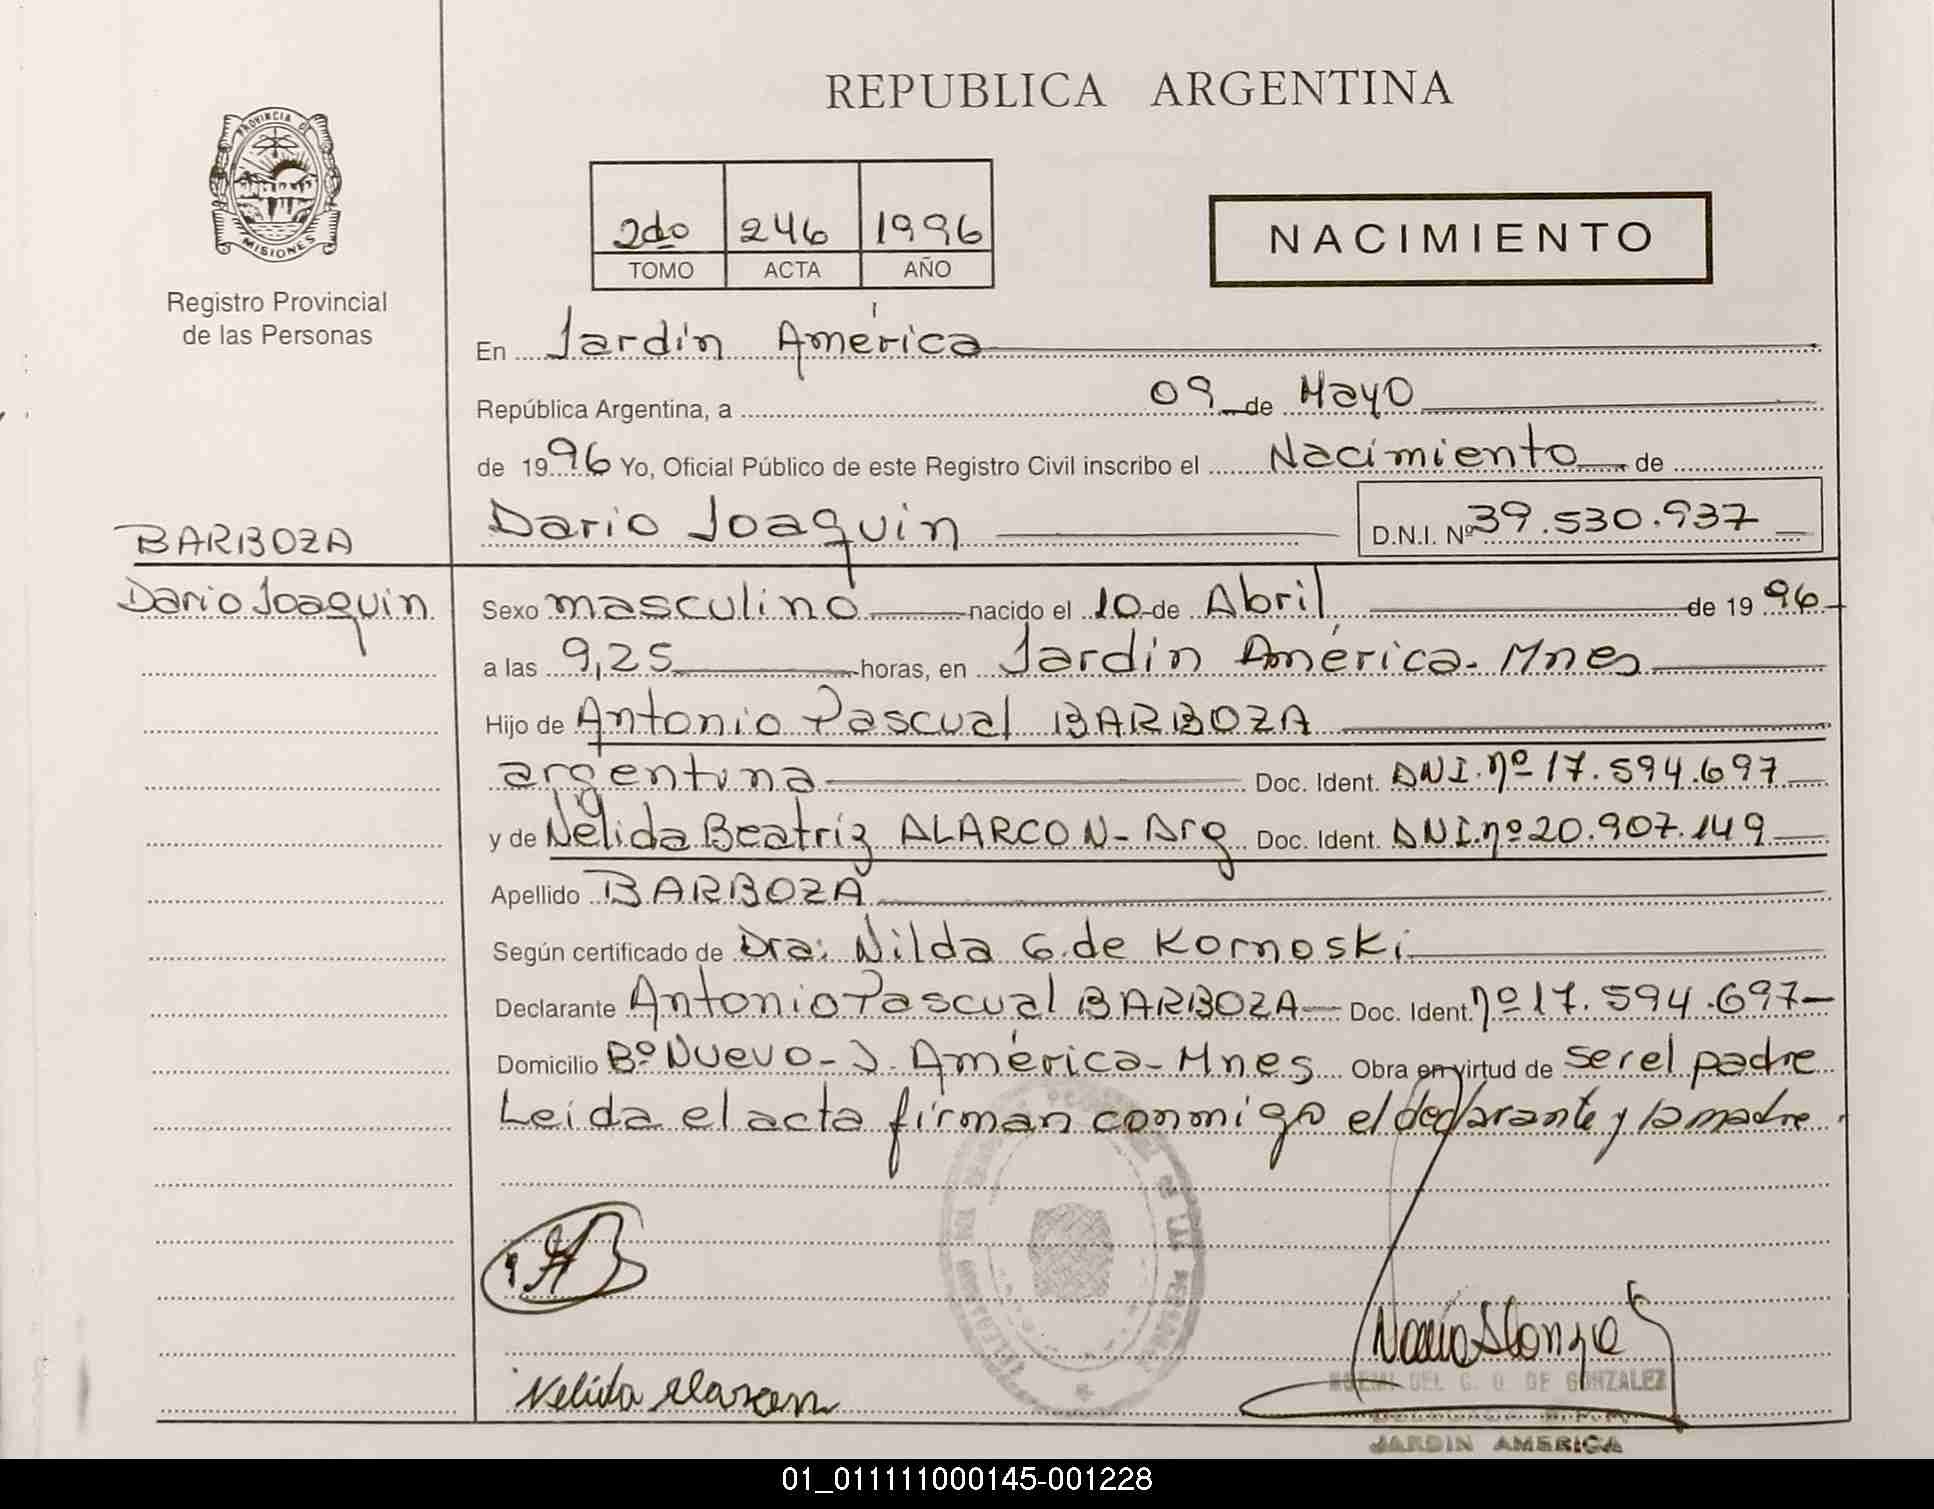 REPUBLICA ARGENTINA
PROVINCIA DE
MISIONES
Registro Provincial
de las Personas
2do 246 1996
TOMO ACTA AÑO
NACIMIENTO
En Jardín América
República Argentina, a 09 de Mayo
de 1996 Yo, Oficial Público de este Registro Civil inscribo el Nacimiento de
Dario Joaquin D.N.I. Nº 39.530.937
BARBOZA
Dario Joaquin
Sexo masculino nacido el 10 de Abril de 1996
a las 9,25 horas, en Jardín América- Mnes
Hijo de Antonio Pascual BARBOZA
argentina Doc. Ident. DNI.nº 17.594.697
y de Nélida Beatríz ALARCON- Arg Doc. Ident. DNI.nº 20.907.149
Apellido BARBOZA
Según certificado de Dra: Nilda G. de Kornoski
Declarante Antonio Pascual BARBOZA Doc. Ident. nº 17.594.697
Domicilio Bº Nuevo- J. América- Mnes Obra en virtud de ser el padre
Leída el acta firman conmigo el declarante y la madre.
Nelida Alarcon
DEL C. O. DE GONZALEZ
JARDIN AMERICA
01_011111000145-001228